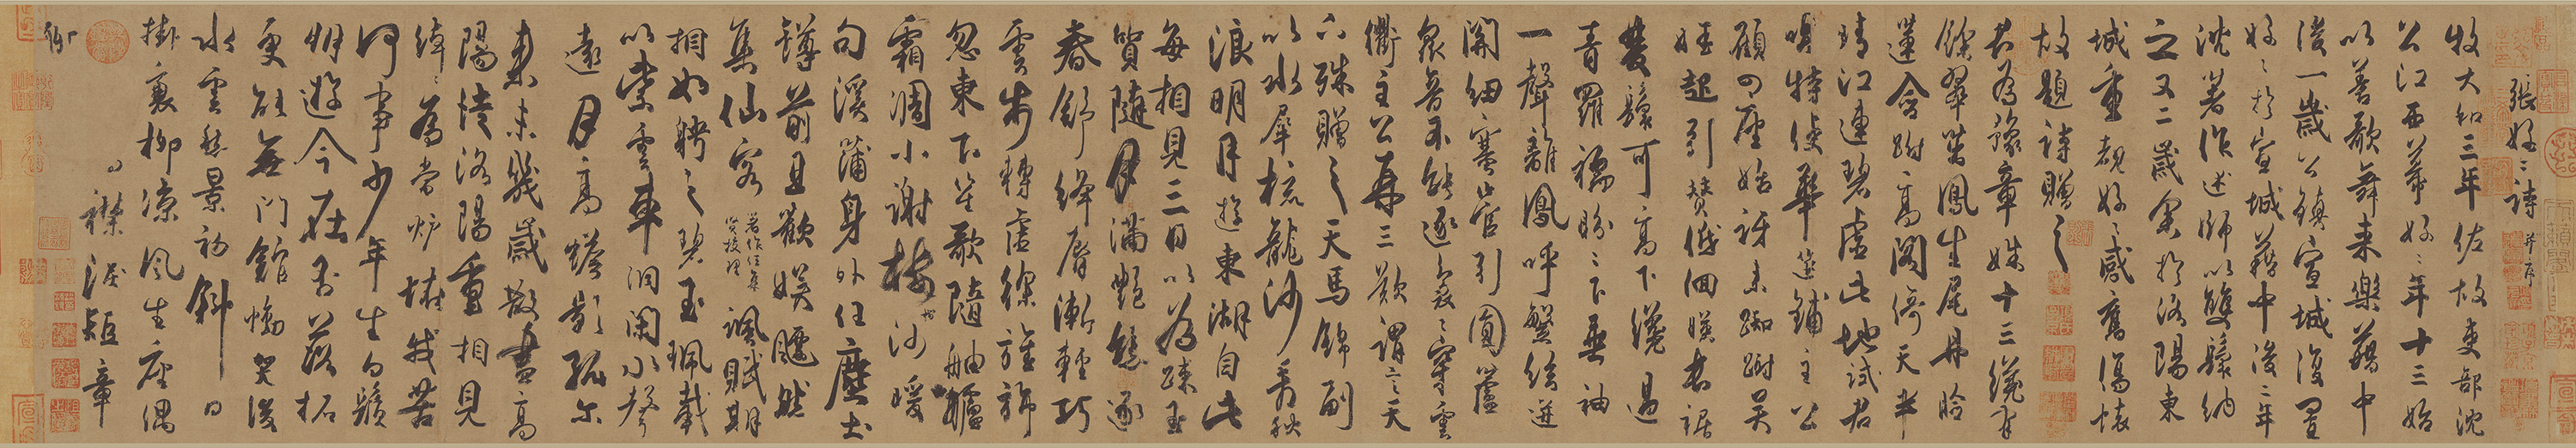 張好好詩 并序
牧大和三年佐故吏部沈
公江西幕好好年十三始
以善歌舞來樂籍中
後一歲公鎮宣城復置
好好於宣城籍中後二年
沈著作述師以雙鬟納
之又二歲余於洛陽東
城重覩好好感舊傷懷
故題詩贈之
君為豫章姝十三纔有
餘翠茁鳳生尾丹臉
蓮含跗高閣倚天半
晴江連碧虛此地試君
唱特使華筵鋪主公
顧四座始訝來踟躕吳
娃起引贊低佪暎長裾
雙鬟可高下纔過
青羅襦盼盼下垂袖
一聲離鳳呼繁絃迸
關紐塞管引圓蘆
衆音不能逐裊裊穿雲
衢主公再三歎謂言天
下殊贈之天馬錦副
以水犀梳龍沙看秋
浪明月遊東湖自此
每相見三日以為疎玉
質隨月滿艷態逐
春舒絳脣漸輕巧
雲步轉虛徐旌旆
忽東下笙歌隨舳艫
霜凋小謝樓沙暖
句溪蒲身外任塵土
罇前且歡娛飄然
集仙客 著作任集賢校理 諷賦期
相如聘之碧玉珮載
以紫雲車洞閉水聲
遠月高蟾影孤爾
來未幾歲散盡高
陽徒洛陽重相見
綽綽為當壚怪我苦
何事少年生白鬚
朋遊今在否落拓
更能無門館慟哭後
水雲愁景初斜日
掛衰柳涼風生座隅
襟淚短章
聊